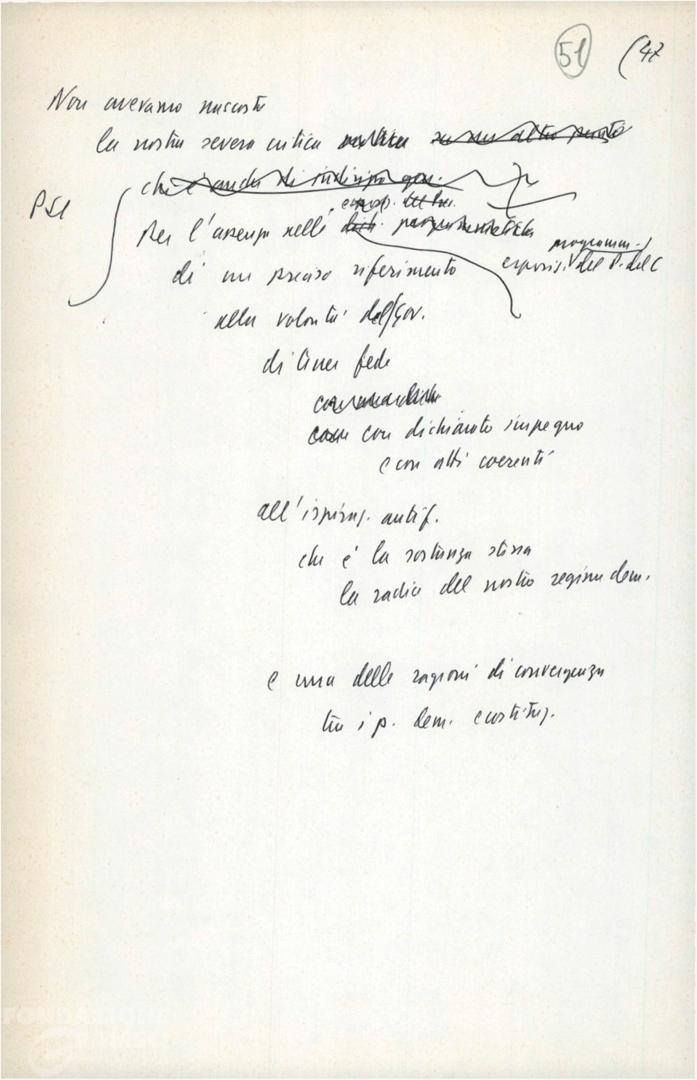 51 (47
Non avevamo nascosto
la nostra severa critica su un altro punto
che è anche di
PSI
espos.
Per l'assenza nelle dich. programmatiche
programm.
esposiz. del P. del C
di un preciso riferimento
alla volontà del Gov.
di tener fede
con dichiarato impegno
e con atti coerenti
all'ispiraz. antif.
che è la sostanza stessa
la radice del nostro regime dem.
e una delle ragioni di convergenza
tra i p. dem. e costituz.
FONDAZIONE